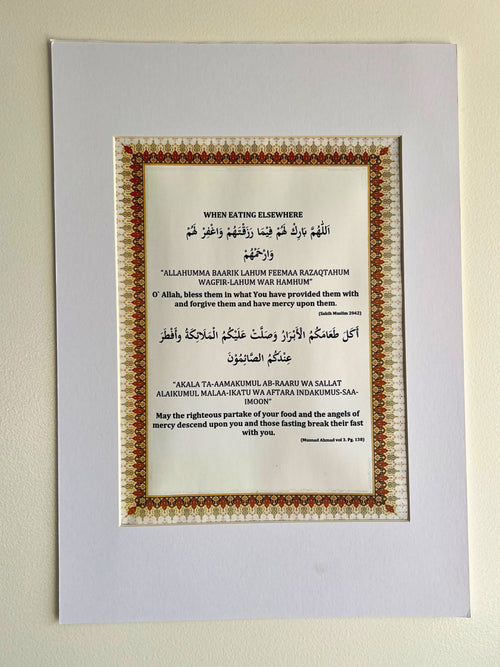 WHEN EATING ELSEWHERE
اَللّٰهُمَّ بَارِكْ لَهُمْ فِيْمَا رَزَقْتَهُمْ وَاغْفِرْ لَهُمْ
وَارْحَمْهُمْ
"ALLAHUMMA BAARIK LAHUM FEEMAA RAZAQTAHUM
WAGFIR-LAHUM WAR HAMHUM"
O` Allah, bless them in what You have provided them with
and forgive them and have mercy upon them.
(Sahih Muslim 2042)
أَكَلَ طَعَامَكُمُ الْأَبْرَارُ وَصَلَّتْ عَلَيْكُمُ الْمَلَائِكَةُ وَأَفْطَرَ
عِنْدَكُمُ الصَّائِمُوْنَ
"AKALA TA-AAMAKUMUL AB-RAARU WA SALLAT
ALAIKUMUL MALAA-IKATU WA AFTARA INDAKUMUS-SAA-
IMOON"
May the righteous partake of your food and the angels of
mercy descend upon you and those fasting break their fast
with you.
(Musnad Ahmad vol 3. Pg. 138)